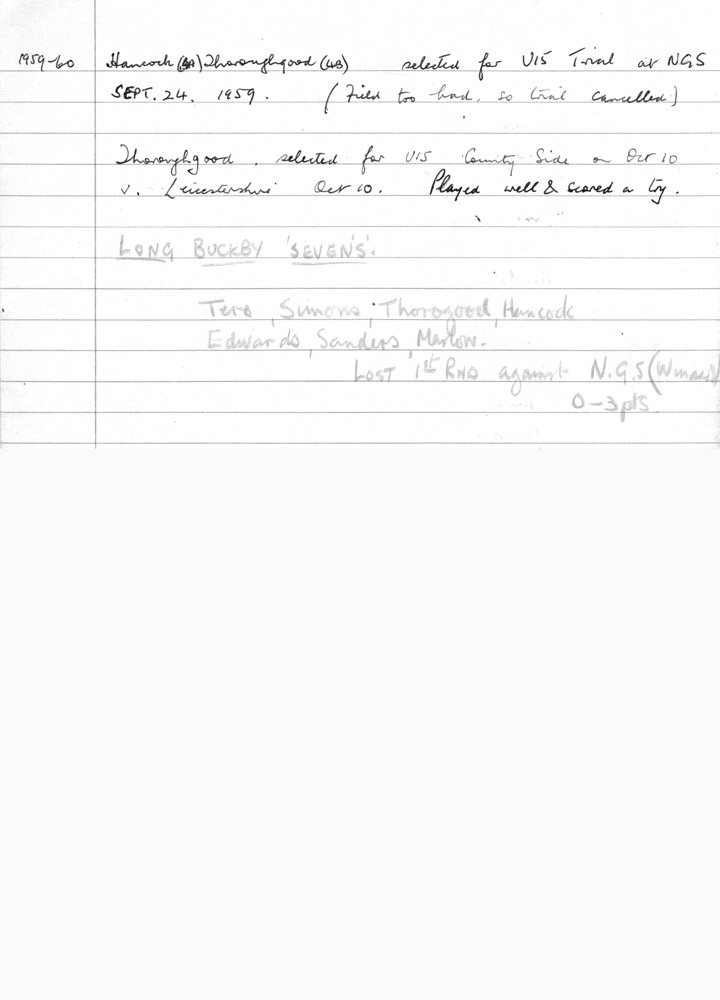 1959-60 Hancock (5A) Thoroughgood (4B) selected for U15 Trial at NGS
SEPT. 24. 1959. (Field too hard, so trial cancelled)
Thoroughgood, selected for U15 County Side on Oct 10
v. Leicestershire Oct 10. Played well & scored a try.
LONG BUCKBY 'SEVENS'.
Simons, Thorogood, Hancock
Edwards, Sanders, Marlow.
LOST 1st RND against N.G.S (Winners)
0-3 pts